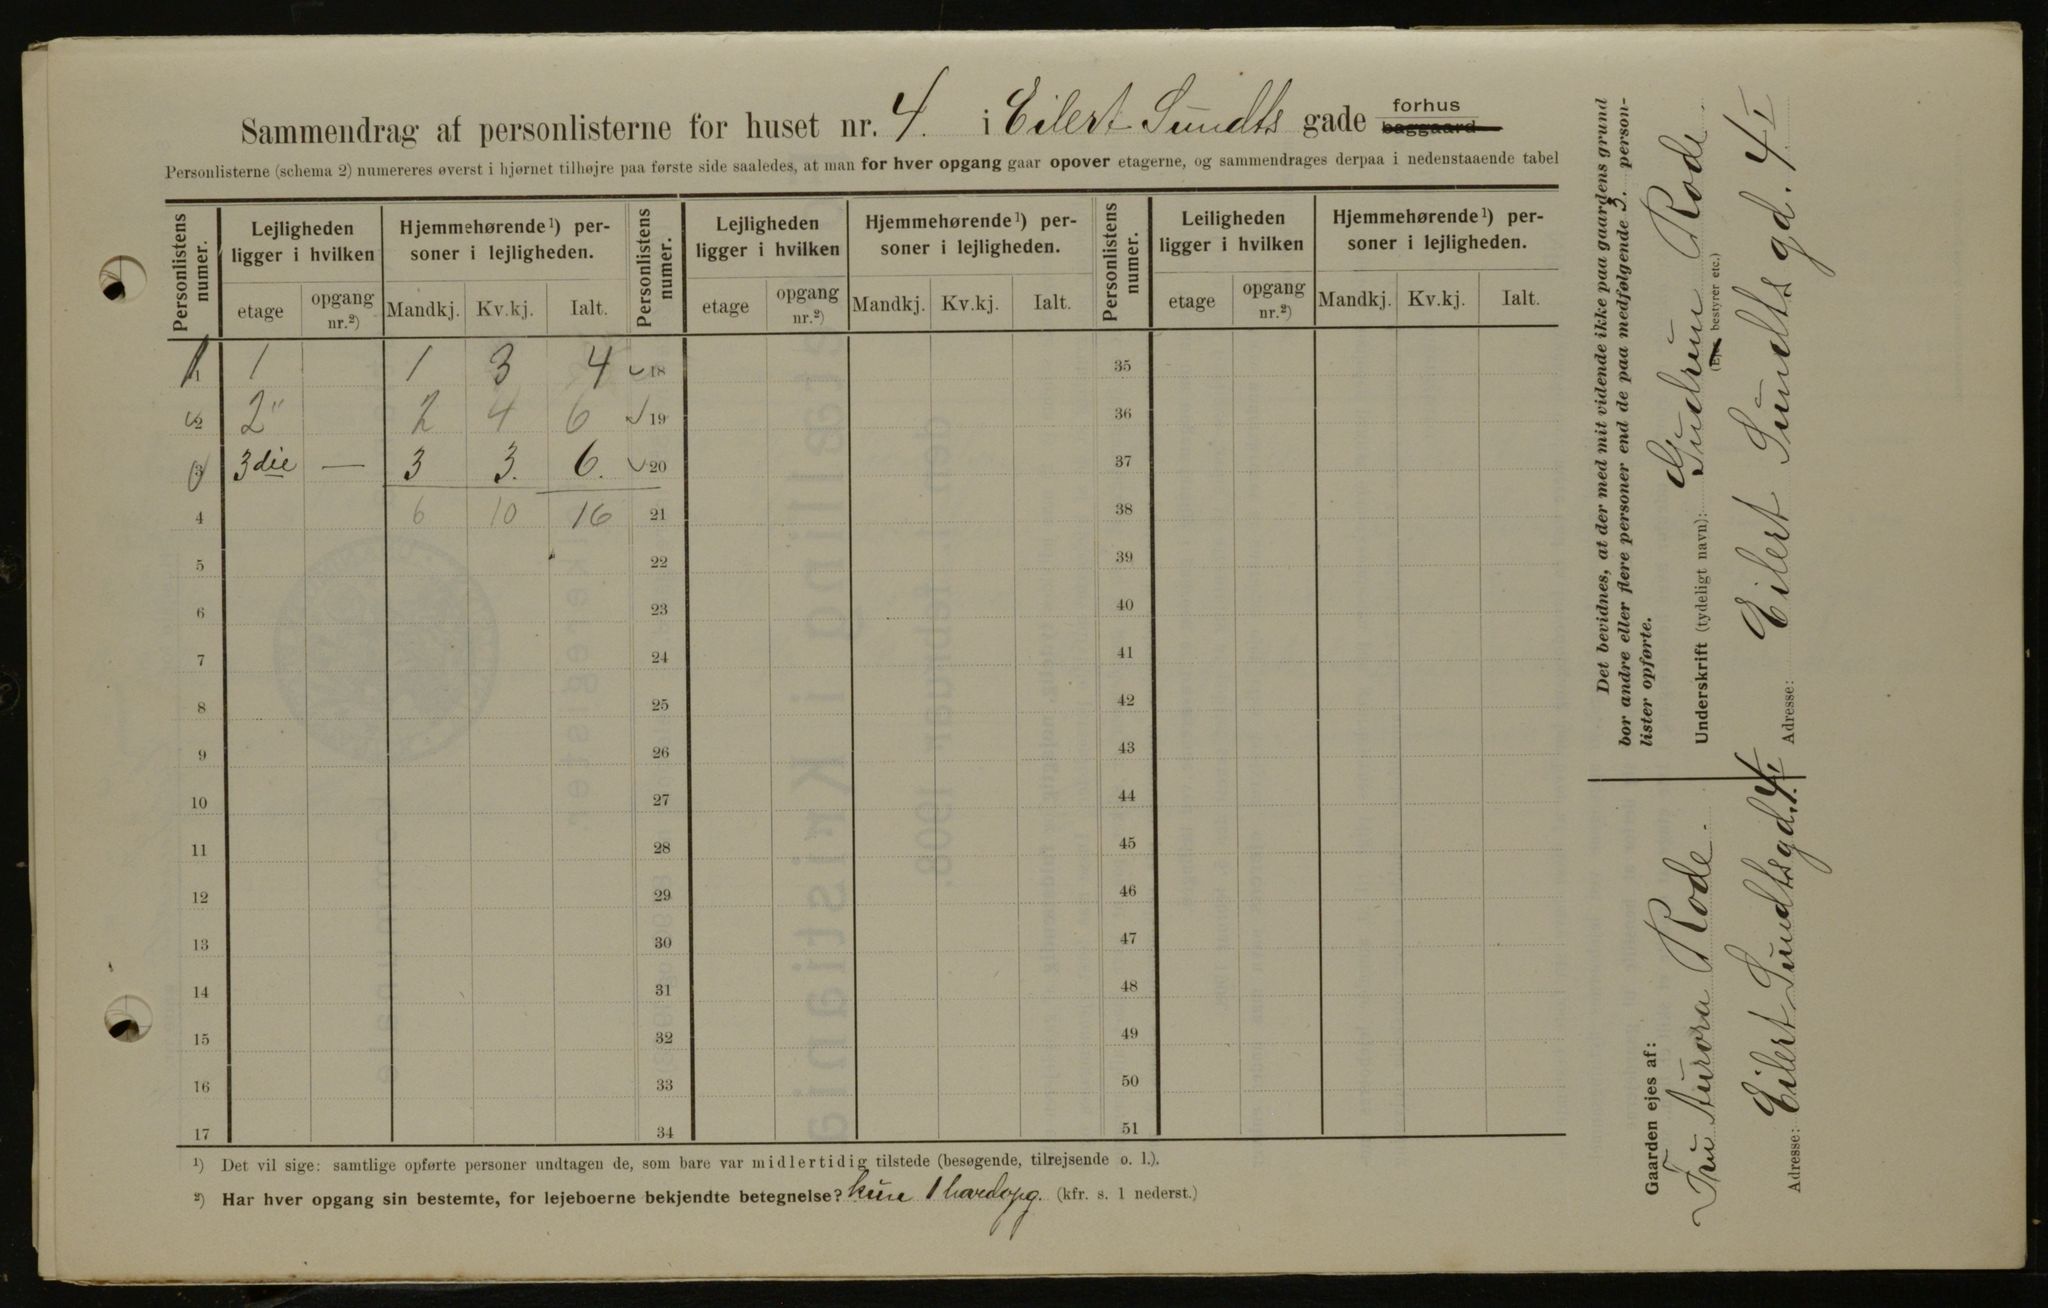 Sammendrag af personlisterne for huset nr. 4. i Eilert Sundts gade forhus baggaard
Personlisterne (schema 2) numereres øverst i hjørnet tilhøjre paa første side saaledes, at man for hver opgang gaar opover etagerne, og sammendrages derpaa i nedenstaaende tabel
Personlistens numer. Lejligheden ligger i hvilken Hjemmehørende¹) personer i lejligheden. Personlistens numer. Lejligheden ligger i hvilken Hjemmehørende¹) personer i lejligheden. Personlistens numer. Leiligheden ligger i hvilken Hjemmehørende¹) personer i lejligheden.
etage opgang nr.²) Mandkj. Kv.kj. Ialt. etage opgang nr.²) Mandkj. Kv.kj. Ialt. etage opgang nr.²) Mandkj. Kv.kj. Ialt.
1 1 1 3 4 18 35
2 2" 2 4 6 19 36
3 3die — 3 3. 6. 20 37
4 6 10 16 21 38
5 22 39
6 23 40
7 24 41
8 25 42
9 26 43
10 27 44
11 28 45
12 29 46
13 30 47
14 31 48
15 32 49
16 33 50
17 34 51
¹) Det vil sige: samtlige opførte personer undtagen de, som bare var midlertidig tilstede (besøgende, tilrejsende o. l.).
²) Har hver opgang sin bestemte, for lejeboerne bekjendte betegnelse? kun 1 hovedopg. (kfr. s. 1 nederst.)
Det bevidnes, at der med mit vidende ikke paa gaardens grund
bor andre eller flere personer end de paa medfølgende 3. person-
lister opførte.
Underskrift (tydeligt navn): Gudrun Rode
(Ejer, bestyrer etc.)
Adresse: Eilert Sundts gd. 4 I
Gaarden ejes af:
Fru Aurora Rode.
Adresse: Eilert Sundtsgd. 4 I